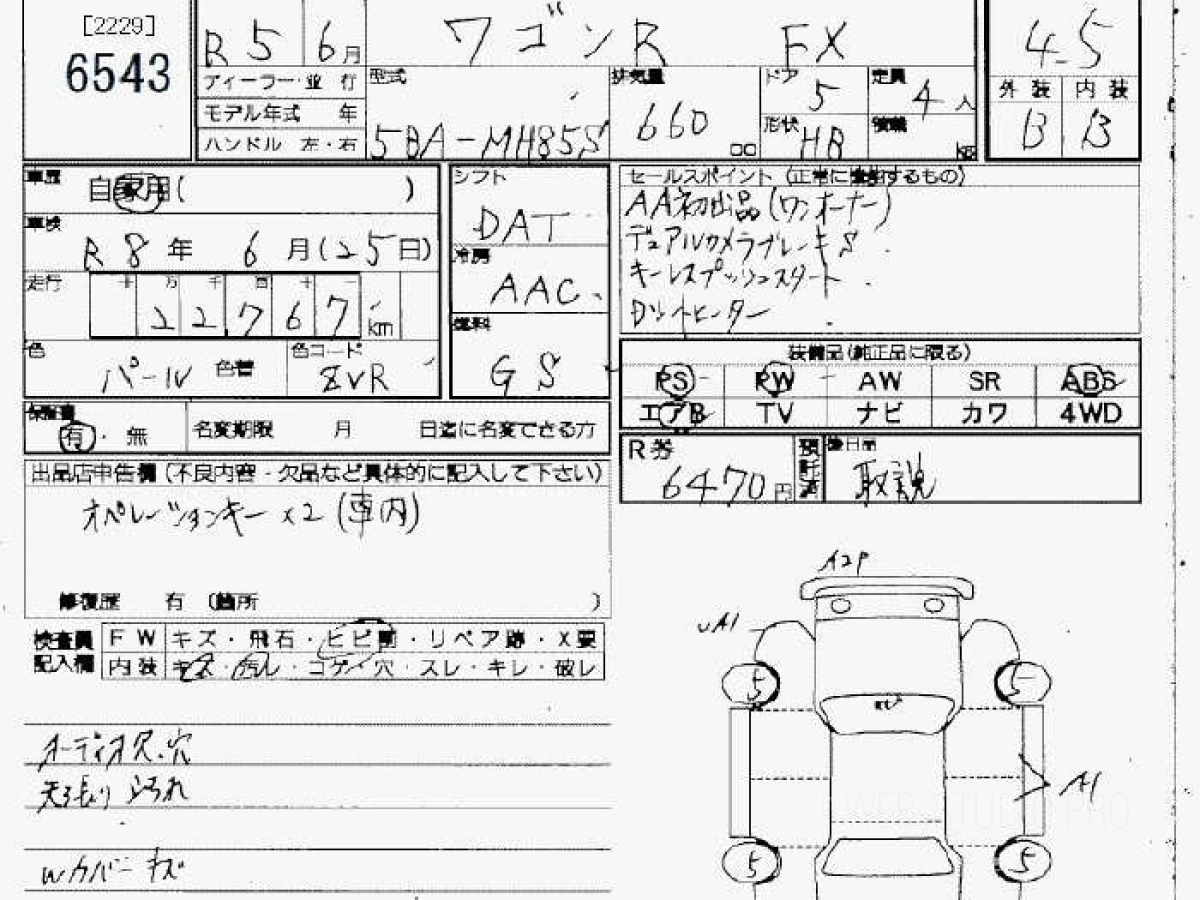 [2229]
6543
R 5 6月
ワゴンR FX
4.5
ディーラー・並行
モデル年式 年
ハンドル 左・右
型式 5BA-MH85S
排気量 660 cc
ドア 5
定員 4人
形状 HB
積載 kg
外装 内装
B B
車歴 自家用( )
車検 R 8年 6月(25日)
走行 十 万 千 百 十 一
22767 km
色 パール 色替
色コード ZVR
シフト DAT
冷房 AAC
燃料 GS
セールスポイント(正常に作動するもの)
AA初出品(ワンオーナー)
デュアルカメラブレーキS
キーレスプッシュスタート
ロットヒーター
装備品(純正品に限る)
PS PW AW SR ABS
エアB TV ナビ カワ 4WD
保証書 有・無
名変期限 月 日迄に名変できる方
R券 6470円
預託済
後日品 取説
出品店申告欄(不良内容・欠品など具体的に記入して下さい)
オペレーションキー x2(車内)
修復歴 有 (箇所 )
検査員記入欄
FW キズ・飛石・ヒビ割・リペア跡・X要
内装 キズ・汚レ・コゲ・穴・スレ・キレ・破レ
オーディオ欠.穴
天張り汚れ
Wカバーキズ
A2P
UA1
5 5
A1
5 5
WEB STUDIO PRO